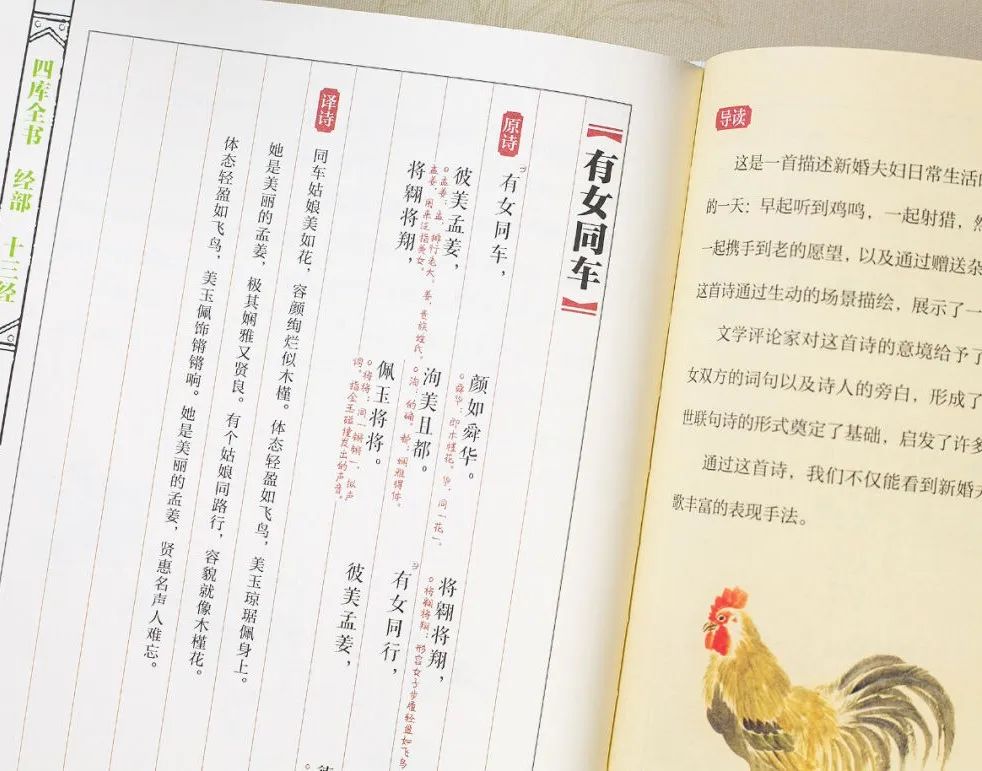 四库全书 经部 十三经
【有女同车】
原诗
有女同车， 颜如舜华。 将翱将翔，
舜华：即木槿花。华，同“花”。
将翱将翔：形容女子步履轻盈如飞鸟
彼美孟姜， 洵美且都。 有女同行，
孟姜：孟，排行老大。姜，贵族姓氏。
孟姜，用来泛指美女。
洵：的确。都：娴雅得体。
将翱将翔， 佩玉将将。 彼美孟姜，
将将：同“锵锵”，拟声
词。指金玉碰撞发出的声音。
译诗
同车姑娘美如花，容颜绚烂似木槿。体态轻盈如飞鸟，美玉琼琚佩身上。
她是美丽的孟姜，极其娴雅又贤良。有个姑娘同路行，容貌就像木槿花。
体态轻盈如飞鸟，美玉佩饰锵锵响。她是美丽的孟姜，贤惠名声人难忘。
导读
这是一首描述新婚夫妇日常生活的
的一天：早起听到鸡鸣，一起射猎，然
一起携手到老的愿望，以及通过赠送杂
这首诗通过生动的场景描绘，展示了一
文学评论家对这首诗的意境给予了
女双方的词句以及诗人的旁白，形成了
世联句诗的形式奠定了基础，启发了许多
通过这首诗，我们不仅能看到新婚夫
歌丰富的表现手法。